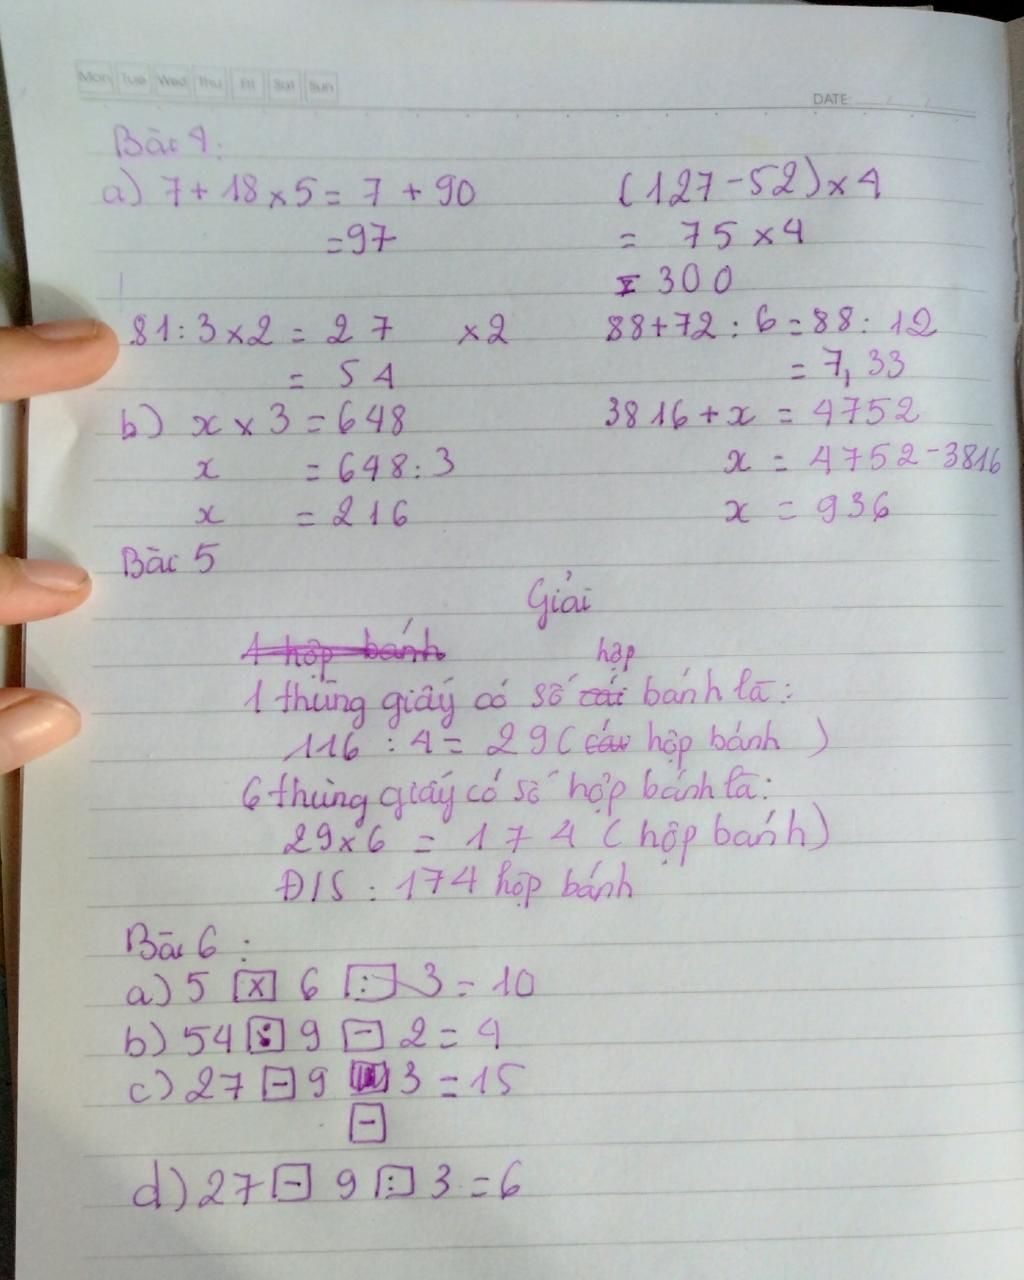 Mon Tue Wed Thu Fri Sat Sun
DATE: / /
Bài 4:
a) 7 + 18 x 5 = 7 + 90
= 97
(127 - 52) x 4
= 75 x 4
= 300
81 : 3 x 2 = 27 x 2
= 54
88 + 72 : 6 = 88 : 12
= 7,33
b) x x 3 = 648
x = 648 : 3
x = 216
3816 + x = 4752
x = 4752 - 3816
x = 936
Bài 5
Giải
1 hộp bánh
1 thùng giấy có số cái hộp bánh là:
116 : 4 = 29 (cái hộp bánh)
6 thùng giấy có số hộp bánh là:
29 x 6 = 174 (hộp bánh)
Đ/S : 174 hộp bánh
Bài 6 :
a) 5 x 6 : 3 = 10
b) 54 : 9 - 2 = 4
c) 27 - 9 - 3 = 15
d) 27 - 9 : 3 = 6